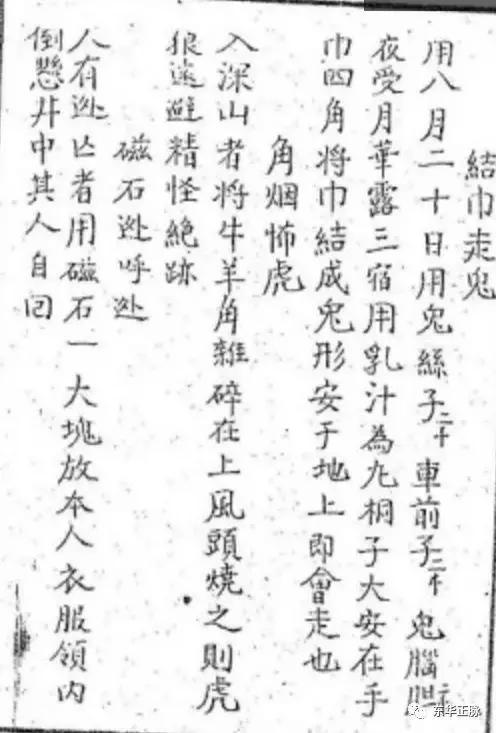 結巾走兔
用八月二十日用兔絲子二十車前子二十兔腦胆
夜受月華露三宿用乳汁為丸桐子大安在手
巾四角將巾結成兔形安于地上即會走也
角烟怖虎
入深山者將牛羊角雜碎在上風頭燒之則虎
狼遠避精怪絕跡
磁石迯呼迯
人有迯亡者用磁石一大塊放本人衣服領內
倒懸井中其人自回
东华正脉